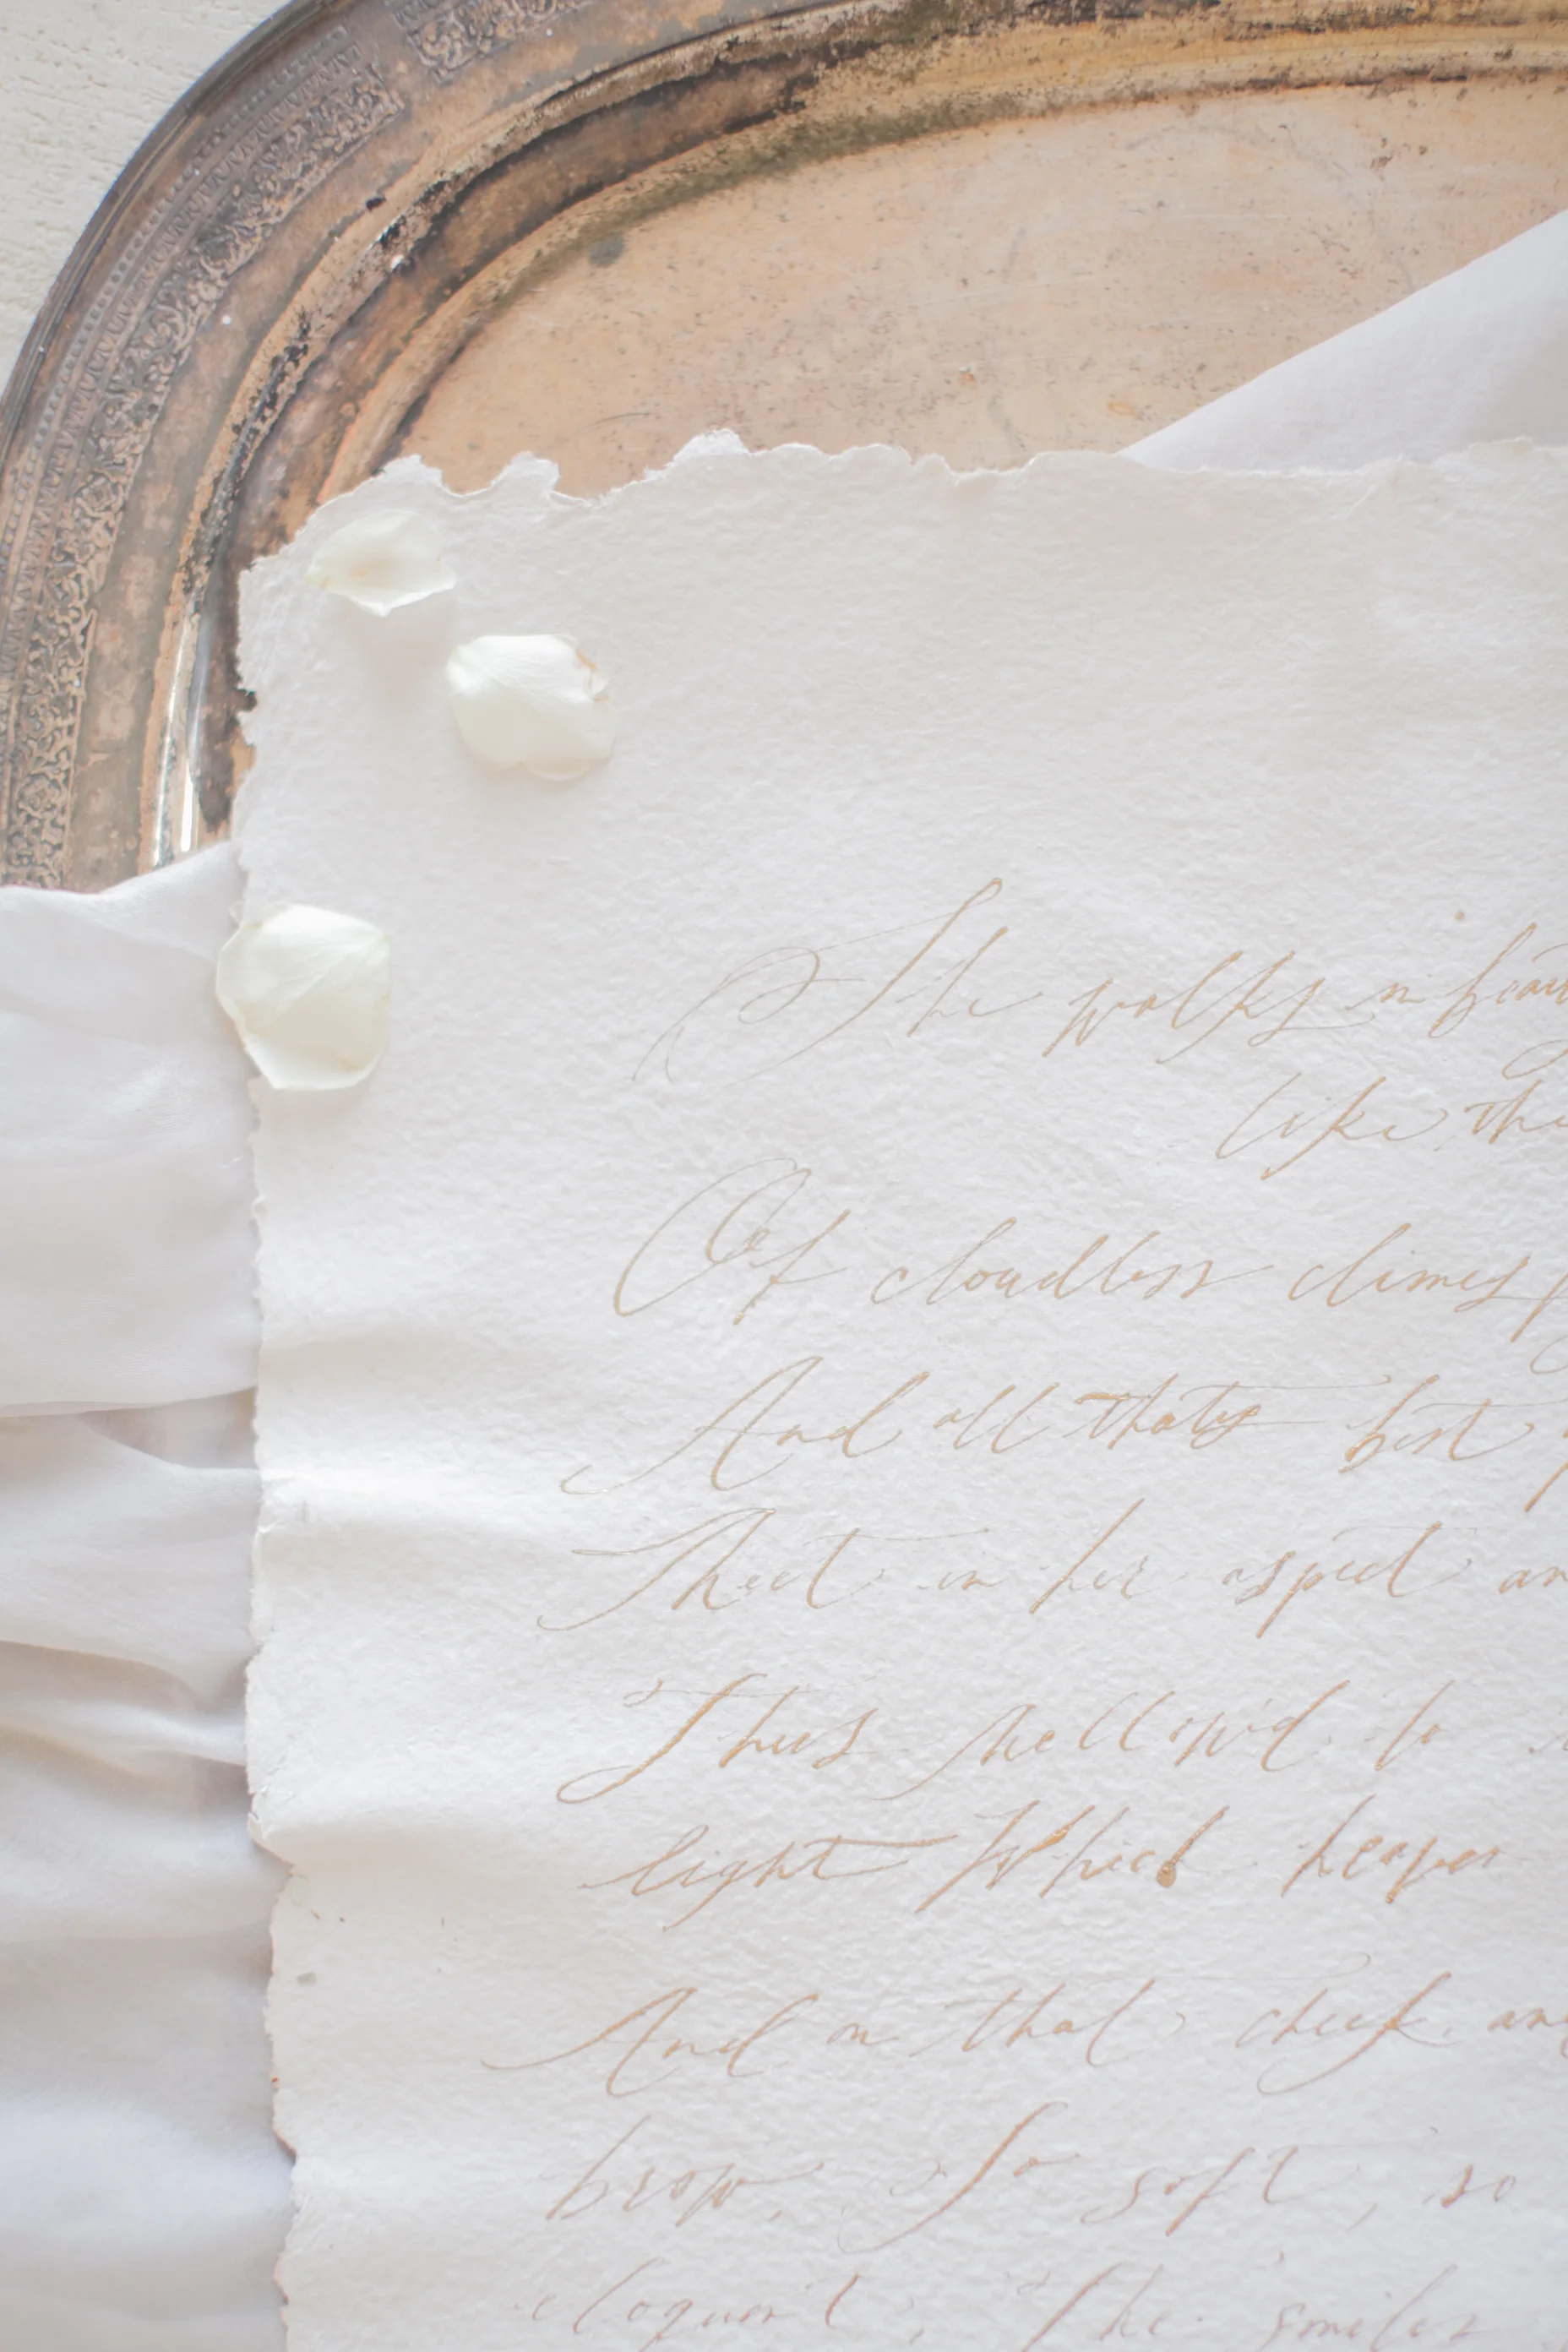 She walks in beau
like the
Of cloudless climes
And all thats best
Meet in her aspect an
Thus mellow'd to
light Which heaven
And on that cheek and
brow, So soft, so
eloquent, The smiles